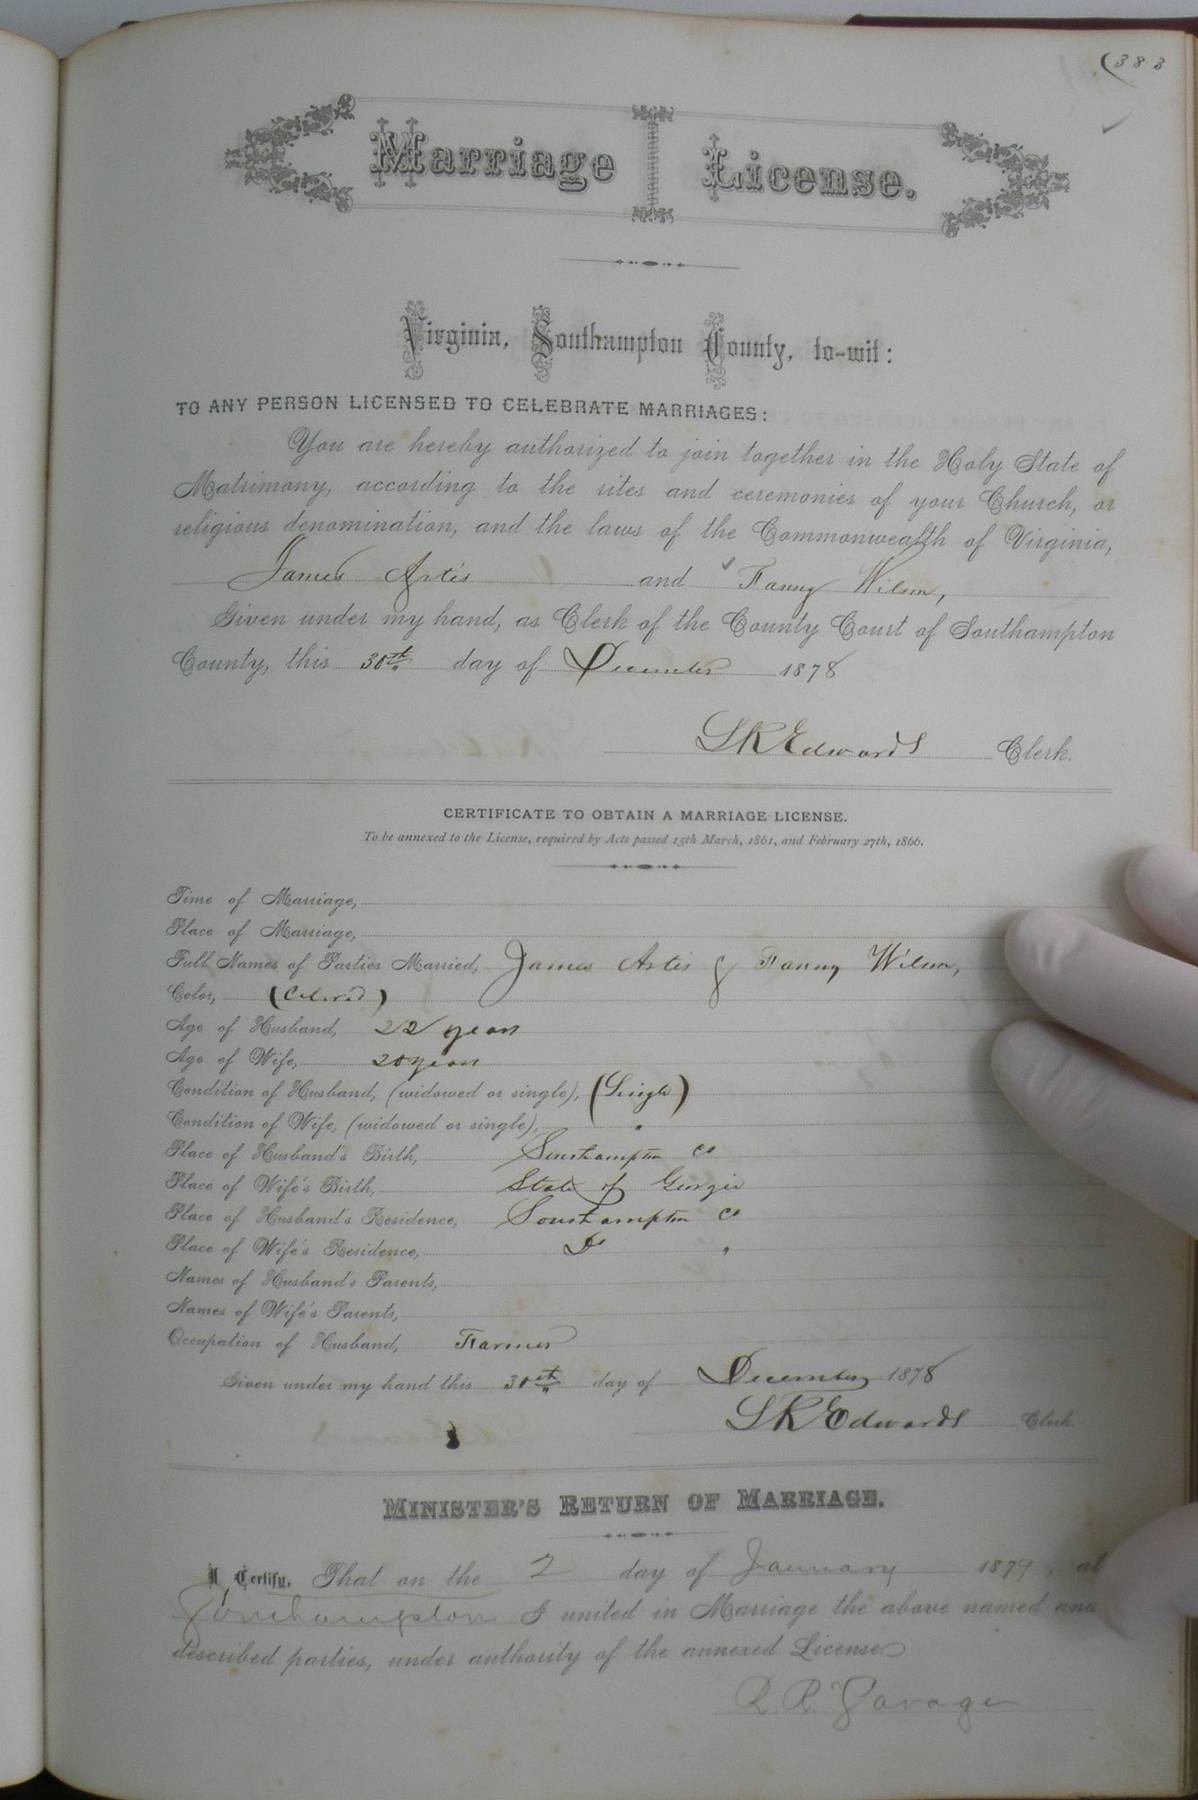 (383
Marriage License.
Virginia, Southampton County, to-wit:
TO ANY PERSON LICENSED TO CELEBRATE MARRIAGES:
You are hereby authorized to join together in the Holy State of
Matrimony, according to the rites and ceremonies of your Church, or
religious denomination, and the laws of the Commonwealth of Virginia,
James Artis and Fanny Wilson,
Given under my hand, as Clerk of the County Court of Southampton
County, this 30th day of December 1878
L R Edwards Clerk.
CERTIFICATE TO OBTAIN A MARRIAGE LICENSE.
To be annexed to the License, required by Acts passed 15th March, 1861, and February 27th, 1866.
Time of Marriage,
Place of Marriage,
Full Names of Parties Married, James Artis & Fanny Wilson,
Color, (Colored)
Age of Husband, 22 years
Age of Wife, 20 years
Condition of Husband, (widowed or single), (Single)
Condition of Wife, (widowed or single), "
Place of Husband's Birth, Southampton Co
Place of Wife's Birth, State of Georgia
Place of Husband's Residence, Southampton Co
Place of Wife's Residence, Do "
Names of Husband's Parents,
Names of Wife's Parents,
Occupation of Husband, Farmer
Given under my hand this 30th day of December 1878
L R Edwards Clerk.
MINISTER'S RETURN OF MARRIAGE.
I Certify, That on the 2 day of January 1879, at
Southampton I united in Marriage the above named and
described parties, under authority of the annexed License.
R. R. Savage